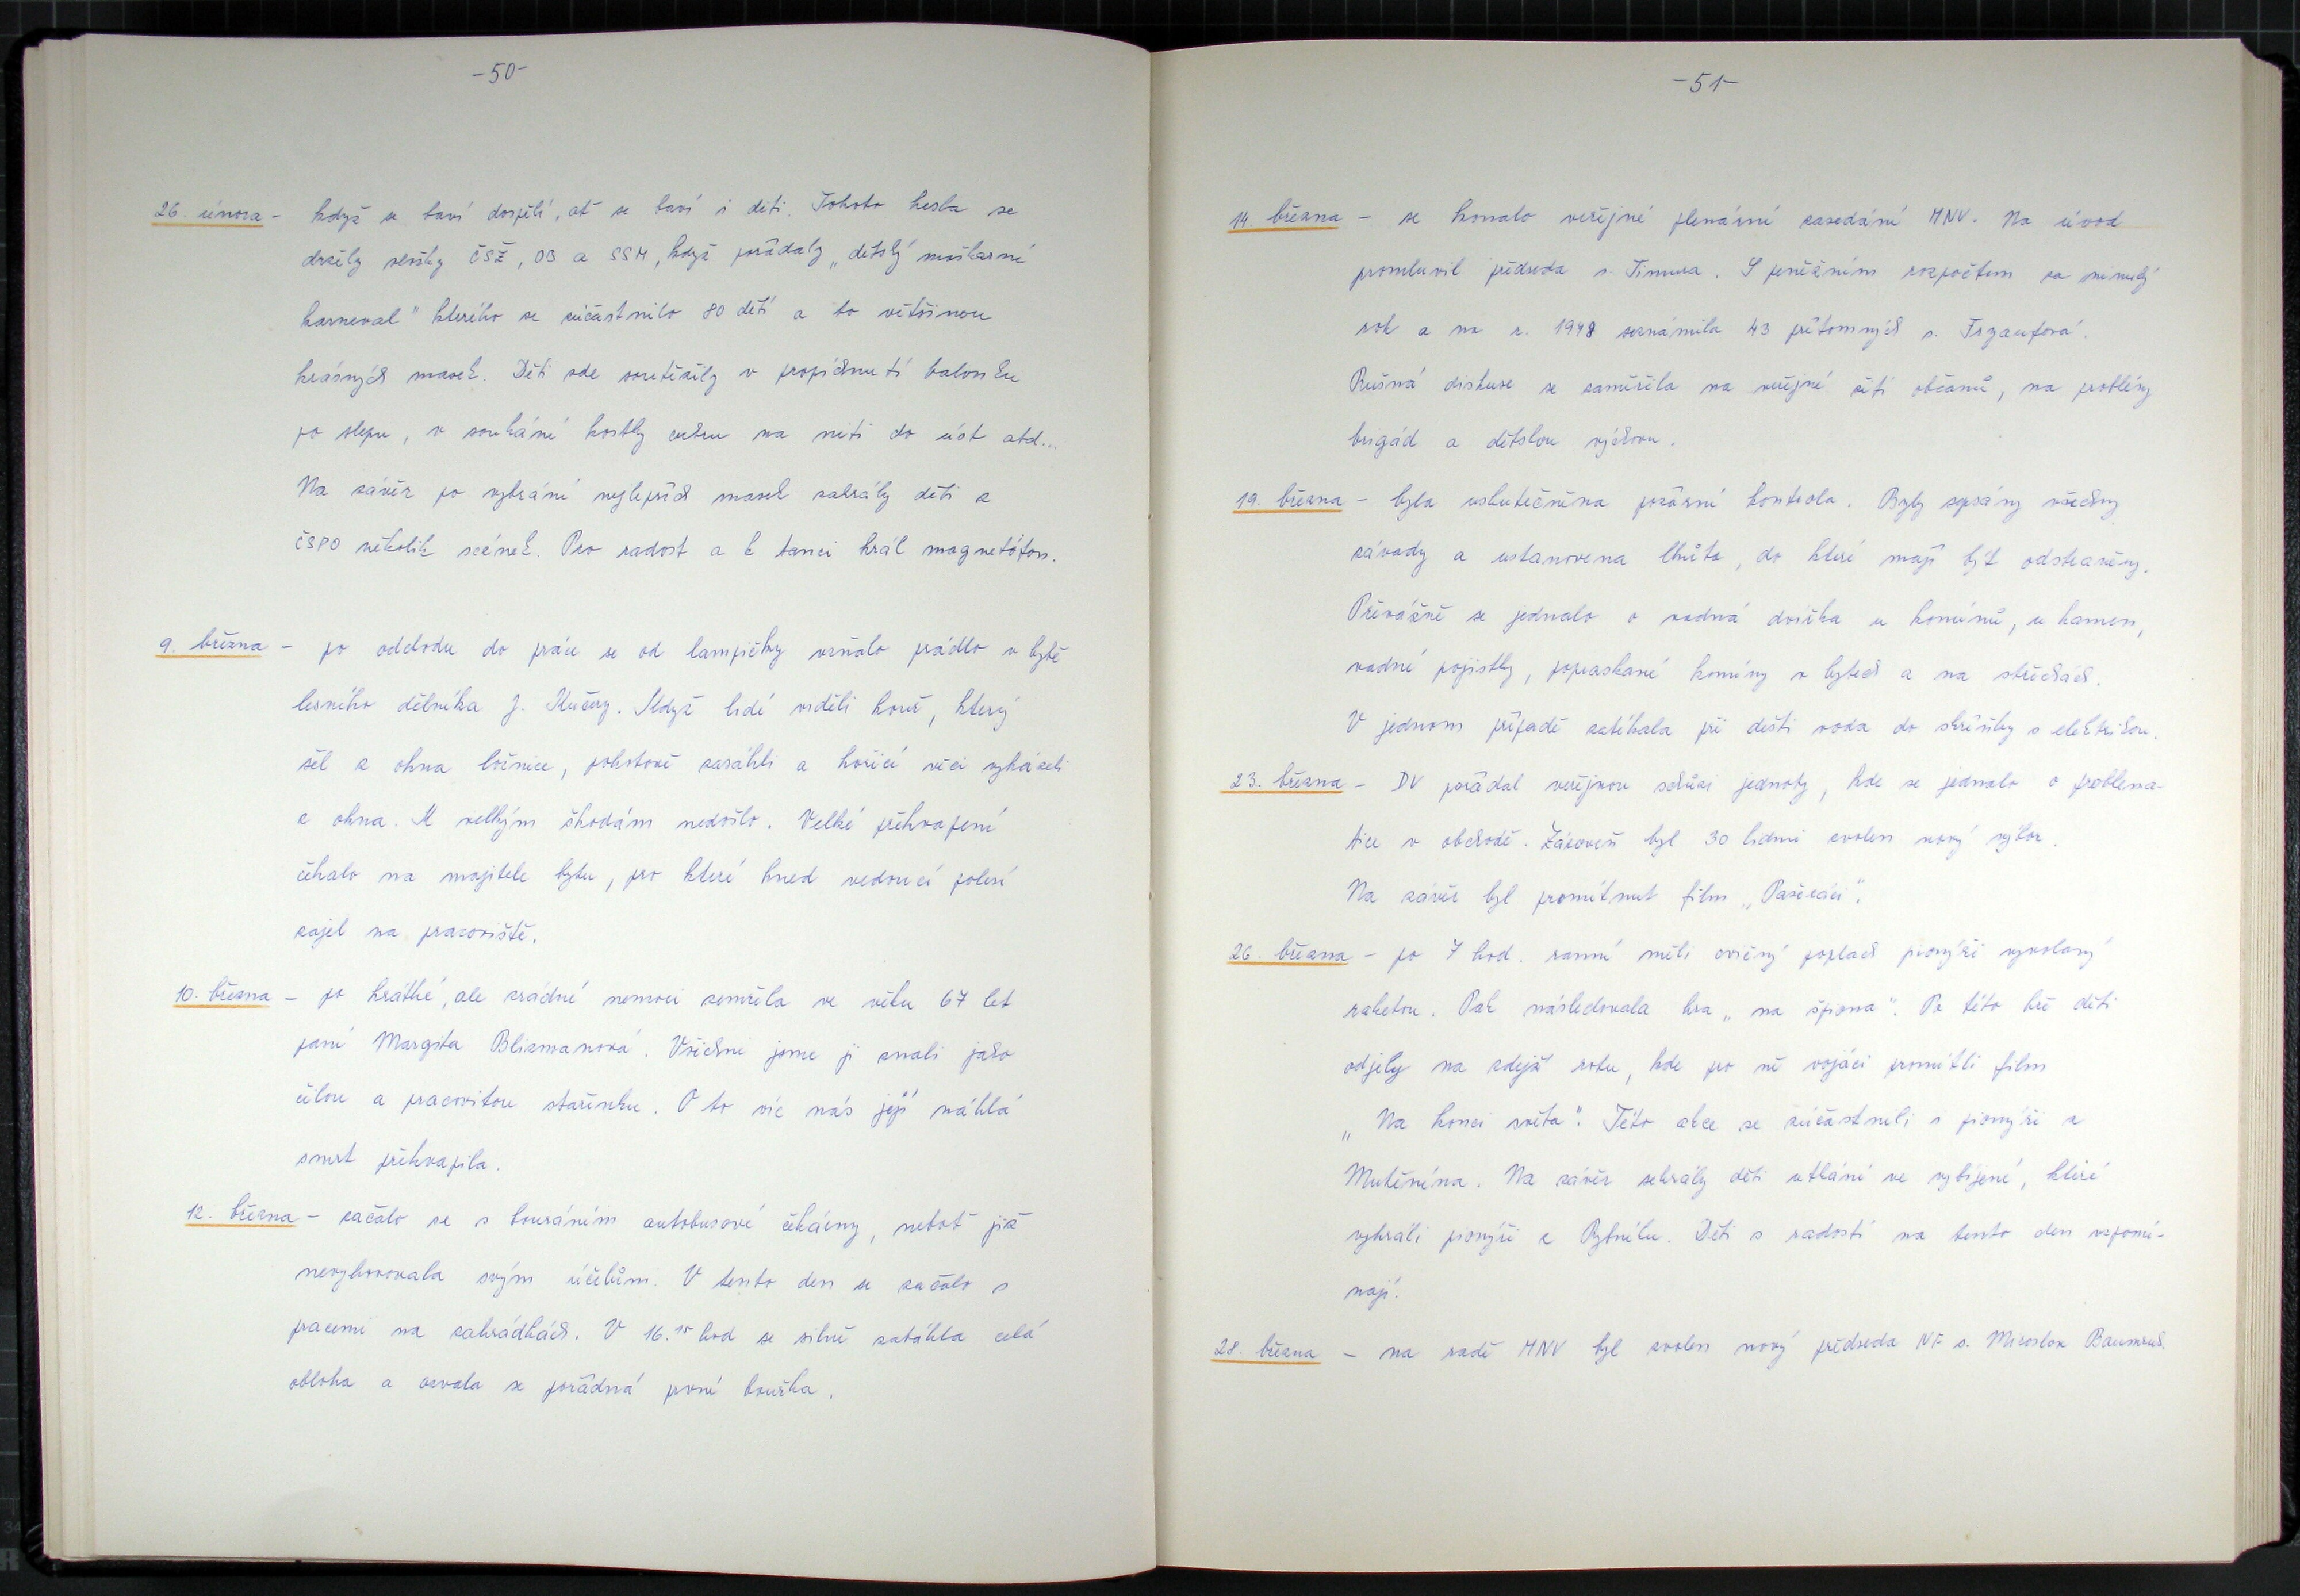 -50-
26. února - když se baví dospělí, ať se baví i děti. Tohoto hesla se
držely složky ČSŽ, OB a SSM, když pořádaly „dětský maškarní
karneval" kterého se zúčastnilo 80 dětí a to většinou
krásných masek. Děti zde soutěžily v propíchnutí balonku
po slepu, v soukání kostky cukru na niti do úst atd...
Na závěr po vybrání nejlepších masek zahrály děti z
ČSPO několik scének. Pro radost a k tanci hrál magnetófon.
9. března - po odchodu do práce se od lampičky vzňalo prádlo v bytě
lesního dělníka J. Kučery. Když lidé viděli kouř, který
šel z okna ložnice, pohotově zasáhli a hořící věci vyházeli
z okna. K velkým škodám nedošlo. Velké překvapení
čekalo na majitele bytu, pro které hned vedoucí polesí
zajel na pracoviště.
10. března - po krátké, ale zrádné nemoci zemřela ve věku 67 let
paní Margita Blizmanová. Všichni jsme ji znali jako
čilou a pracovitou stařenku. O to víc nás její náhlá
smrt překvapila.
12. března - začalo se s bouráním autobusové čekárny, neboť již
nevyhovovala svým účelům. V tento den se začalo s
pracemi na zahrádkách. V 16.15 hod se silně zatáhla celá
obloha a ozvala se pořádná první bouřka.
-51-
14 března - se konalo veřejné plenární zasedání MNV. Na úvod
promluvil předseda s. Timura. S peněžním rozpočtem za minulý
rok a na r. 1978 seznámila 43 přítomných s.
Rušná diskuse se zaměřila na veřejné žití občanů, na problémy
brigád a dětskou výchovu.
19. března - byla uskutečněna požární kontrola. Byly sepsány všechny
závady a ustanovena lhůta, do které mají být odstraněny.
Převážně se jednalo o vadná dvířka u komínů, u kamen,
vadné pojistky, popraskané komíny v bytech a na střechách.
V jednom případě zatékala při dešti voda do skříňky s elektrikou.
23. března - DV pořádal veřejnou schůzi jednoty, kde se jednalo o problema-
tice v obchodě. Zároveň byl 30 lidmi zvolen nový výbor.
Na závěr byl promítnut film „Pašeráci".
26. března - po 7 hod. ranní měli cvičný poplach pionýři vyvolaný
raketou. Pak následovala hra „na špiona". Po této hře děti
odjely na zdejší rotu, kde pro ně vojáci promítli film
„Na konci světa". Této akce se zúčastnili i pionýři z
Mutěnína. Na závěr sehrály děti utkání ve vybíjené, které
vyhráli pionýři z Rybníku. Děti s radostí na tento den vzpomí-
nají.
28. března - na radě MNV byl zvolen nový předseda NF s. Miroslav